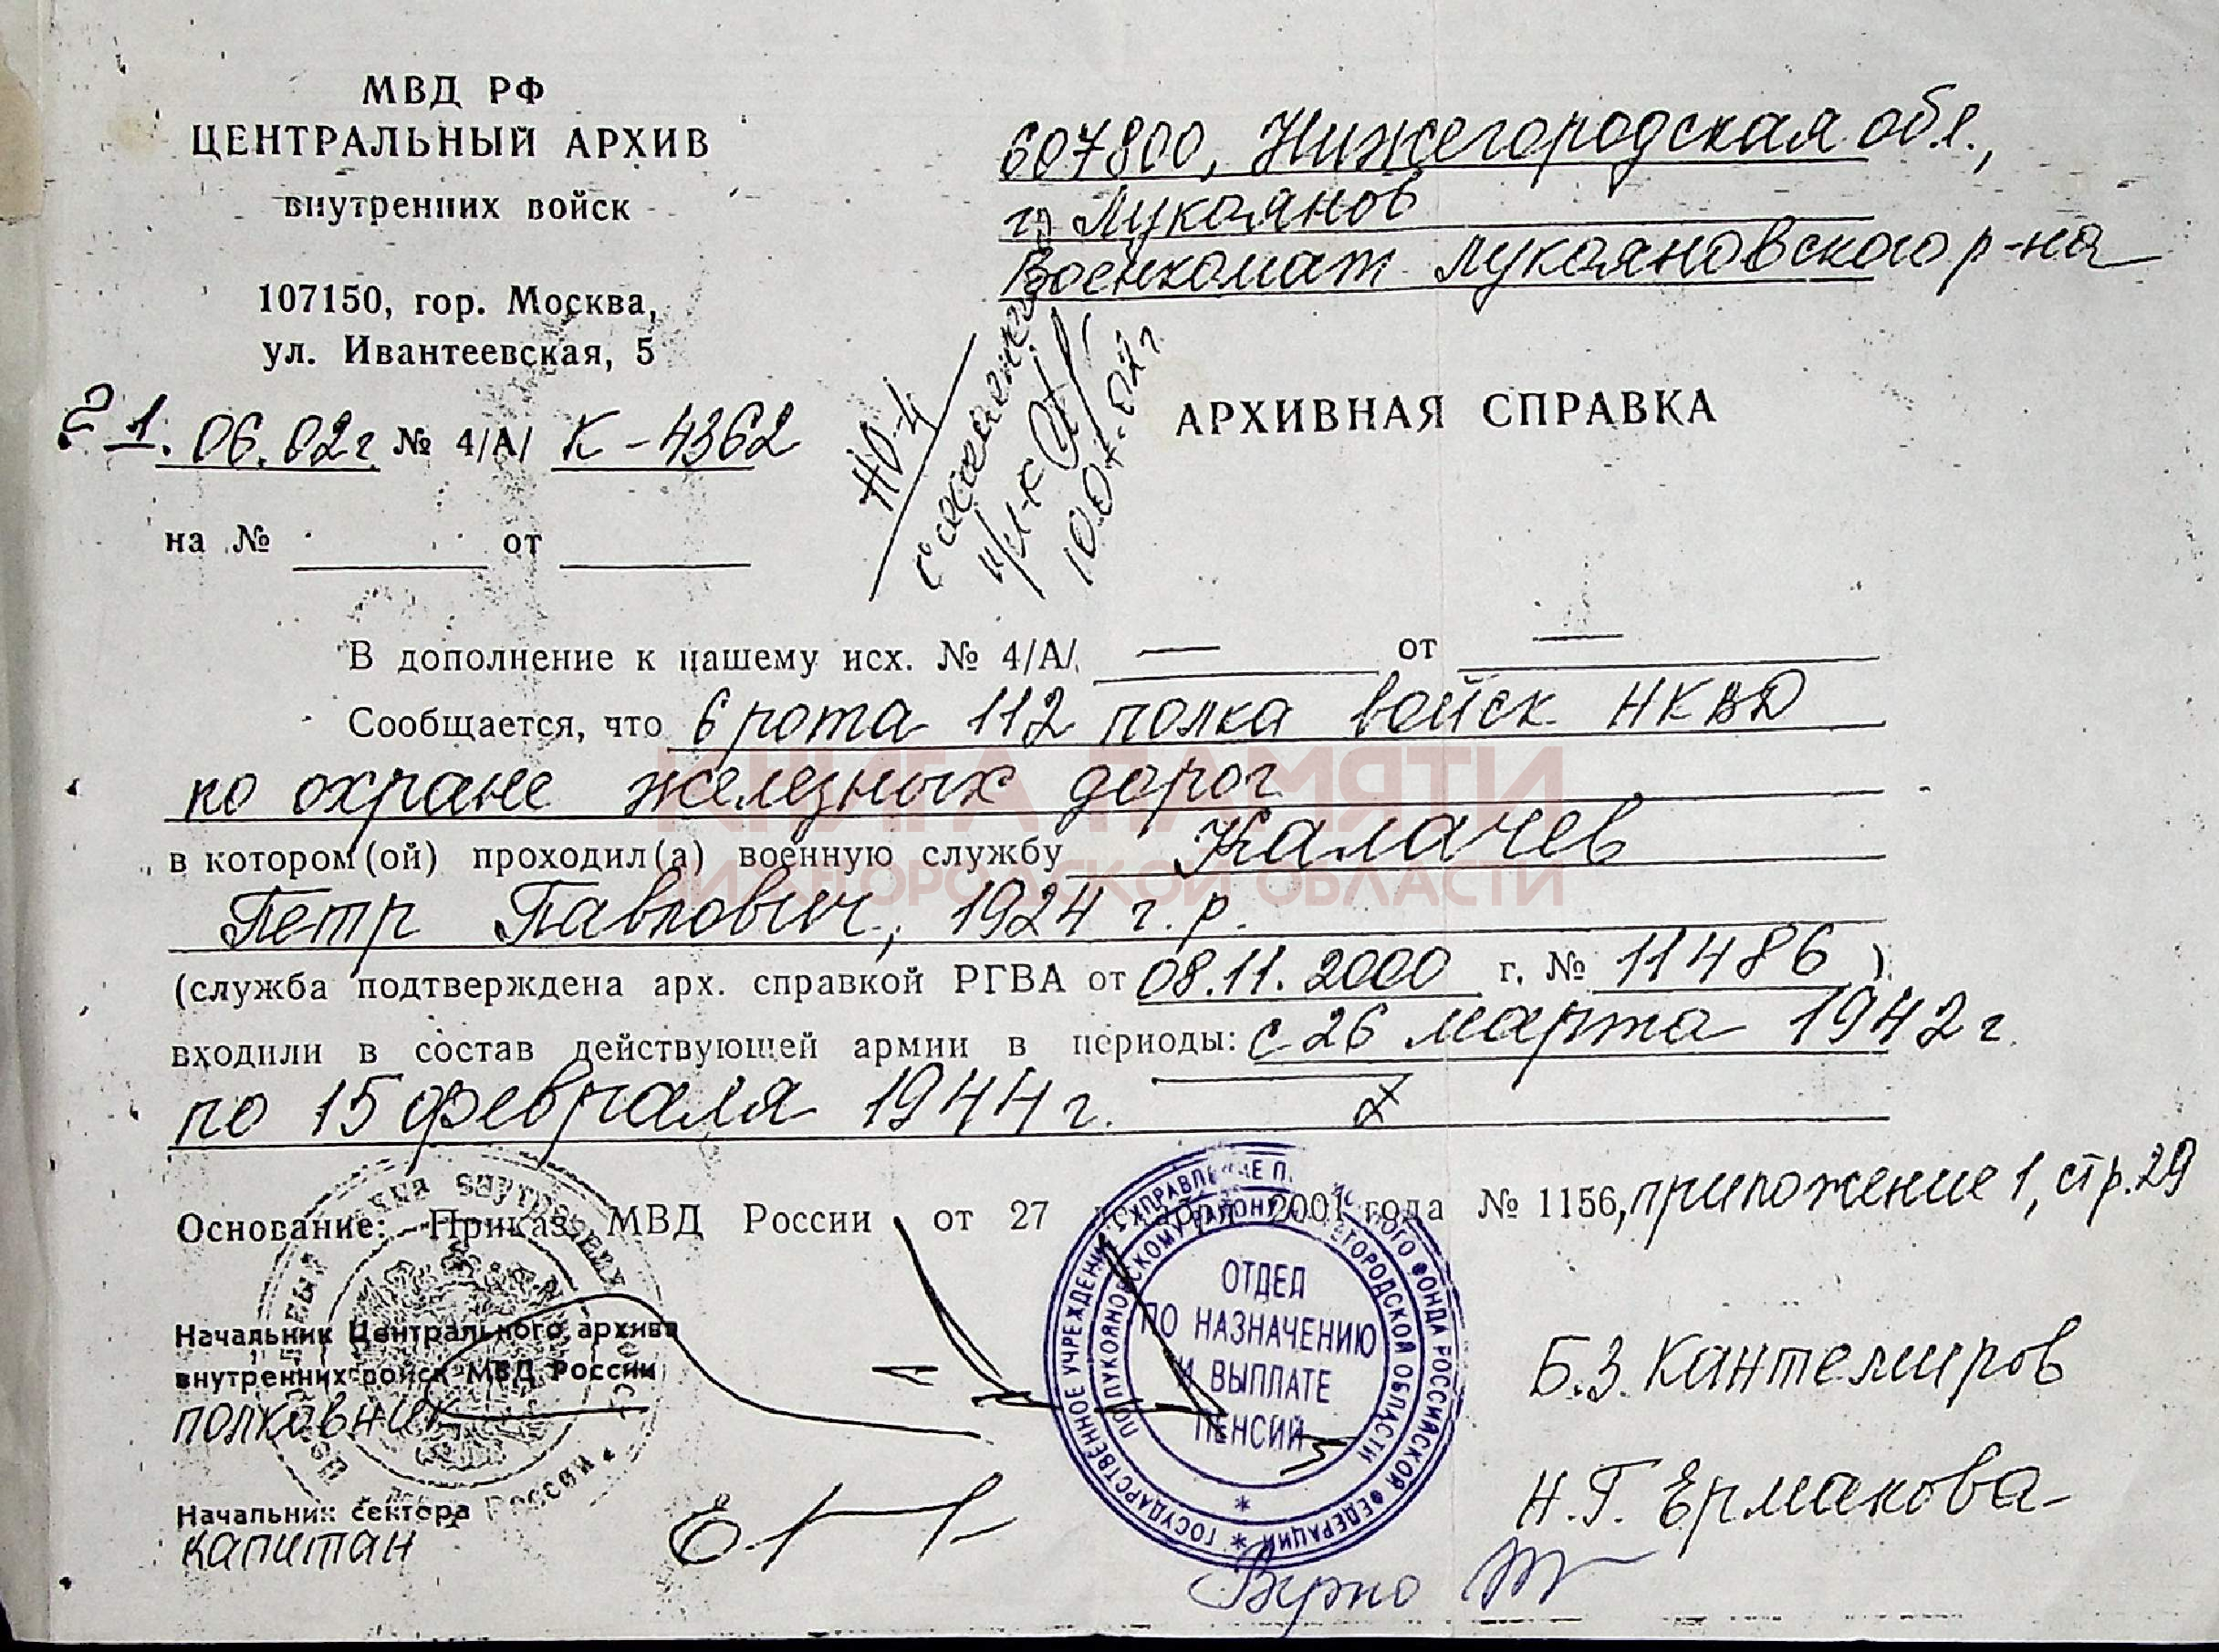 МВД РФ
ЦЕНТРАЛЬНЫЙ АРХИВ
внутренних войск
107150, гор. Москва,
ул. Ивантеевская, 5
21.06.02г № 4/А/ К-4362
на № от
607800, Нижегородская обл.,
г. Лукоянов
Военкомат Лукояновского р-на
АРХИВНАЯ СПРАВКА
НО-4
10.07.02г.
В дополнение к нашему исх. № 4/А/ — от —
Сообщается, что 6 рота 112 полка войск НКВД
по охране железных дорог
в котором(ой) проходил(а) военную службу Калачев
Петр Павлович, 1924 г.р.
(служба подтверждена арх. справкой РГВА от 08.11.2000 г. № 11486)
входили в состав действующей армии в периоды: с 26 марта 1942 г.
по 15 февраля 1944 г.
Основание: Приказ МВД России от 27 2001 года № 1156, приложение 1, стр.29
Начальник Центрального архива
внутренних войск МВД России
полковник
Б.З. Кантемиров
Начальник сектора
капитан
Н.Г. Ермакова
ГОСУДАРСТВЕННОЕ УЧРЕЖДЕНИЕ - УПРАВЛЕНИЕ ПЕНСИОННОГО ФОНДА РОССИЙСКОЙ ФЕДЕРАЦИИ
ПО ЛУКОЯНОВСКОМУ РАЙОНУ НИЖЕГОРОДСКОЙ ОБЛАСТИ
ОТДЕЛ
ПО НАЗНАЧЕНИЮ
И ВЫПЛАТЕ
ПЕНСИЙ
Верно
КНИГА ПАМЯТИ
НИЖЕГОРОДСКОЙ ОБЛАСТИ